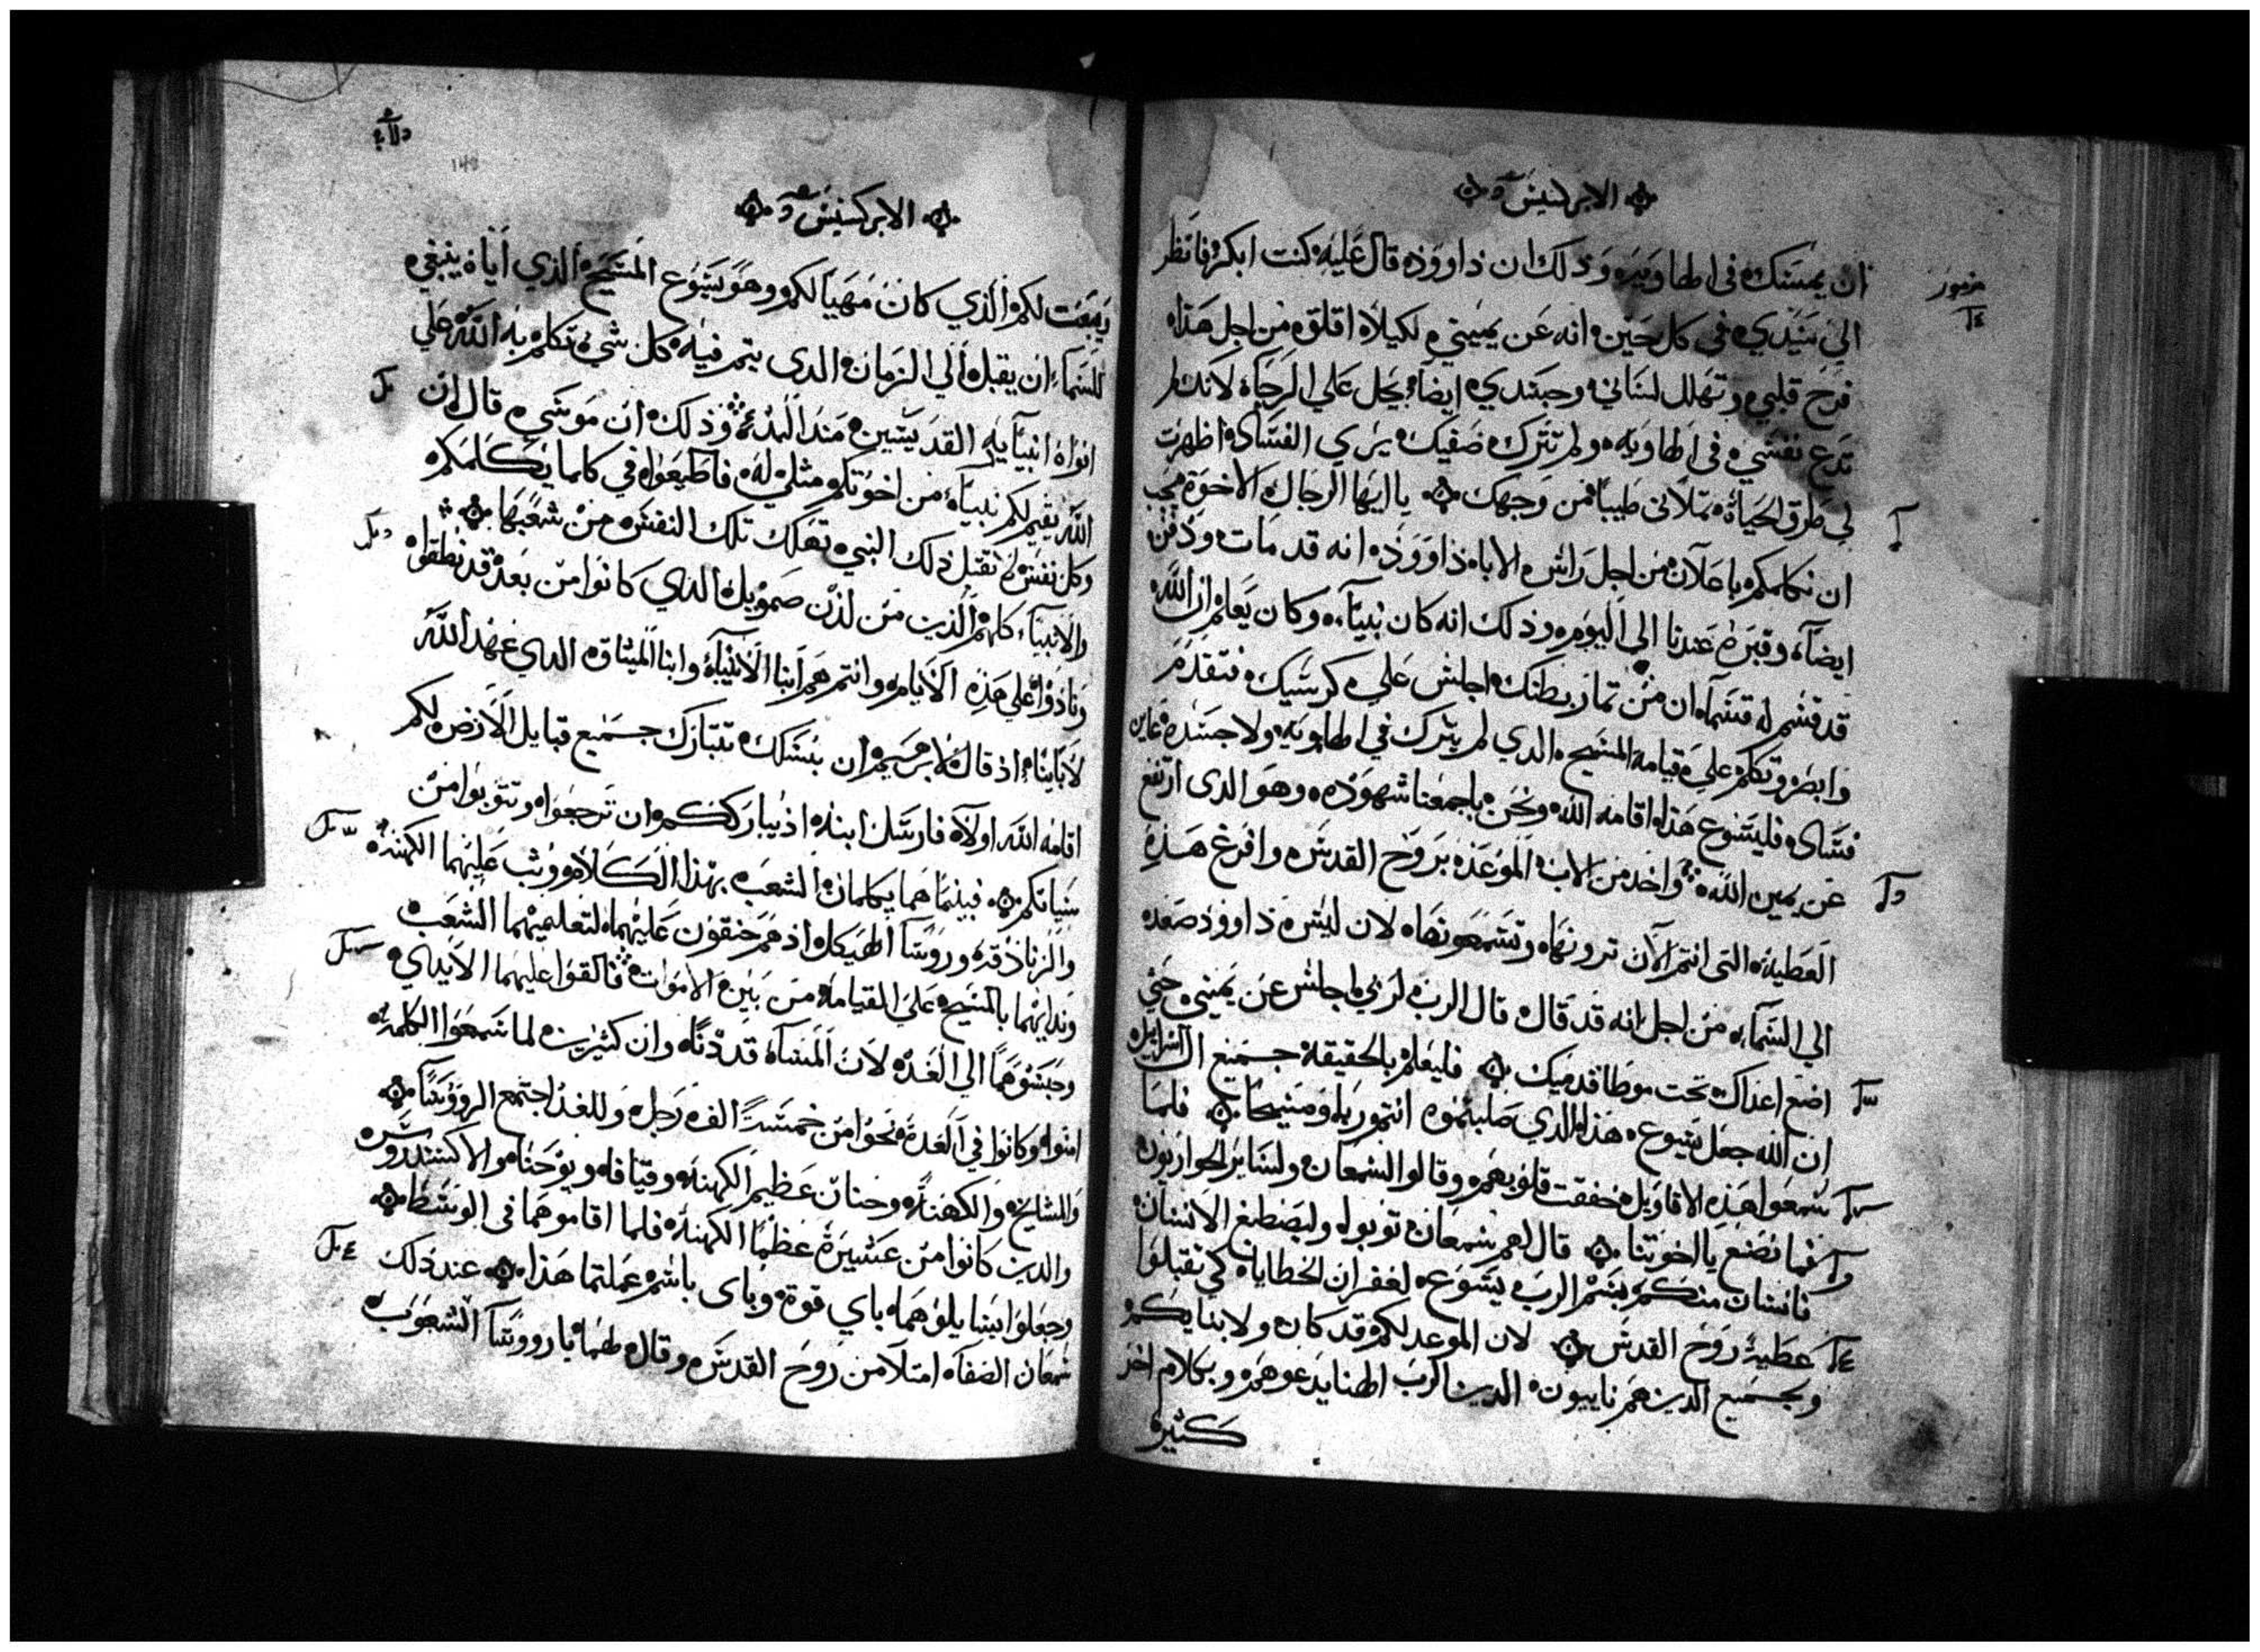 الابركسيس
ان يمسك في الهاويه وذلك ان داوود قال عليه كنت ابكر فانظر
مزمور
الي سيدي في كل حين انه عن يميني لكيلا اقلق من اجل هذا
فرح قلبي وتهلل لساني وجسدي ايضا يحل علي الرجاة لانك لم
تدع نفسي في الهاويه ولم تترك صفيك يري الفساد اظهرت
لي طرق الحياة تملاني طيبا من وجهك يا ايها الرجال الاخوة يجب
ان نكلمكم باعلان من اجل راس الابا داوود انه قد مات ودفن
ايضا وقبره عندنا الي اليوم وذلك انه كان نبيا وكان يعلم ان الله
قد قسم له قسما ان من ثمار بطنك اجلس علي كرسيك فتقدم
وابصر وتكلم علي قيامة المسيح الذي لم يترك في الهاويه ولا جسده عاين
فساد فليسوع هذا اقامه الله ونحن باجمعنا شهوده وهو الدى ارتفع
عن يمين الله واخد من الاب الموعد بروح القدس وافرغ هذه
العطيه التى انتم الان ترونها وتسمعونها لان ليس داوود صعد
الي السماء من اجل انه قد قال قال الرب لربي اجلس عن يميني حتي
اضع اعداك تحت موطا قدميك فليعلم بالحقيقة جميع ال اسراييل
ان الله جعل يسوع هذا الدي صلبتموه انتم ربا ومسيحا فلما
سمعوا هذه الاقاويل خفقت قلوبهم وقالوا لشمعان ولساير الحواريون
فما نصنع يا اخوتنا قال لهم شمعان توبوا وليصطبغ الانسان
فانسان منكم بسم الرب يسوع لغفران الخطايا كي تقبلوا
عطية روح القدس لان الموعد لكم قد كان ولابنايكم
وبجميع الدين هم ناييون الدين الرب الهنا يدعوهم وبكلام اخر
كثيره
الابركسيس
يبعت لكم الذي كان مهيا لكم وهو يسوع المسيح الذي اياه ينبغي
للسماء ان يقبل الي الزمان الدى يتم فيه كل شي تكلم به الله علي
افواه انبيايه القديسين منذ البدء وذلك ان موسي قال ان
الله يقيم لكم نبيا من اخوتكم مثلي له فاطيعوا في كلما يكلمكم
وكل نفس لم تقبل ذلك النبي تهلك تلك النفس من شعبها
والانبياء كلهم الذين من لدن صمويل الدي كانوا من بعده قد نطقوا
ونادوا علي هذه الايام وانتم هم ابنا الانبياء وابنا الميثاق الدي عهد الله
لابايناء اذ قال لابرهيم ان بنسلك تتبارك جميع قبايل الارض لكم
اقامه الله اولا فارسل ابنه اذ يبارككم ان ترجعوا وتتوبوا من
سياتكم فبينما هما يكلمان الشعب بهذا الكلام وثب عليهما الكهنة
والزنادقه وروسا الهيكل اذ هم حنقون عليهما لتعليمهما الشعب
وندايهما بالمسيح علي القيامة من بين الاموات فالقوا عليهما الايدي
وحبسوهما الي الغد لان المساء قد دنا وان كثيرين لما سمعوا الكلمه
امنوا وكانوا في العدة نحوا من خمسة الف رجل وللغد اجتمع الرووسا
والمشايخ والكهنة وحنان عظيم الكهنه وقيافا ويوحنا والاكسندروس
والدين كانوا من عشيرة عظما الكهنه فلما اقاموهما في الوسط
وجعلوا يسايلوهما باي قوة وباى باسم عملتما هذا عند ذلك
شمعان الصفا امتلا من روح القدس وقال لهما يا رووسا الشعوب